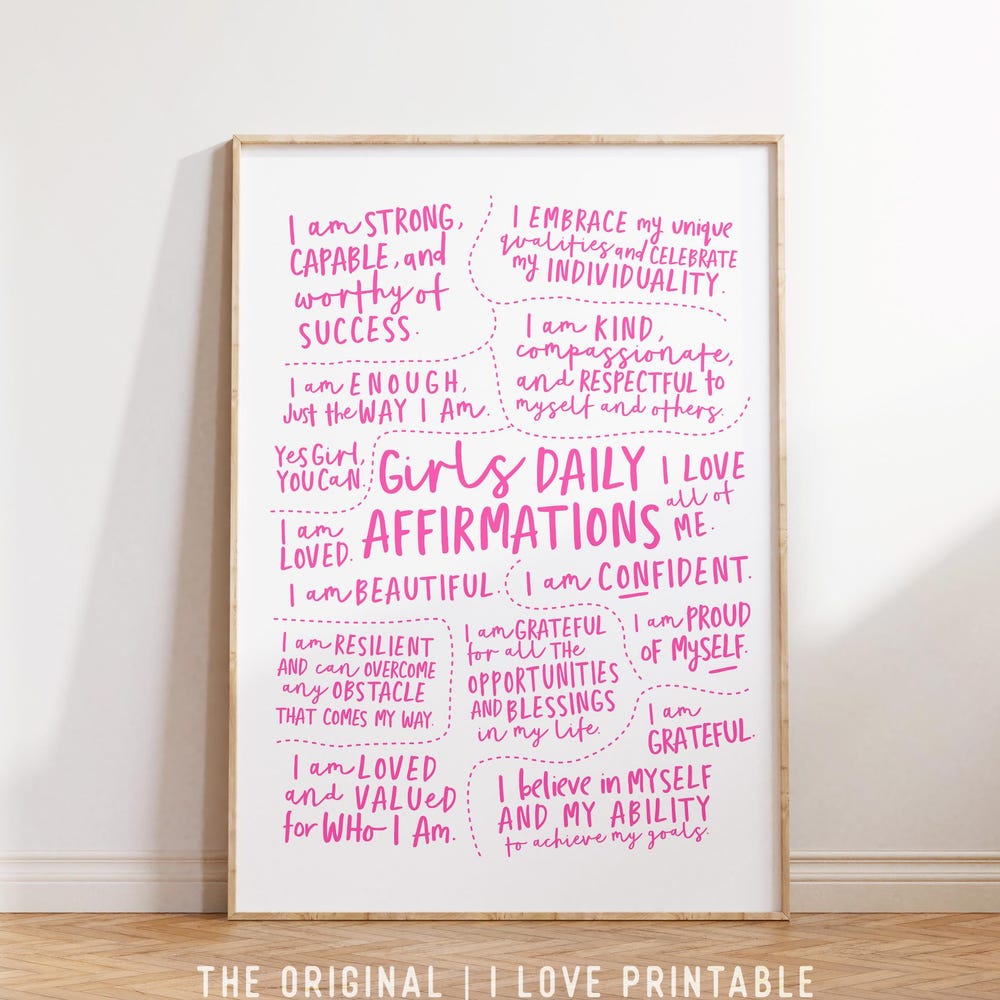 I am STRONG,
CAPABLE, and
worthy of
SUCCESS.
I EMBRACE my unique
qualities and CELEBRATE
my INDIVIDUALITY.
I am KIND,
compassionate,
and RESPECTFUL to
myself and others.
I am ENOUGH,
Just the WAY I Am.
Yes Girl,
YOU CaN.
Girls DAILY
AFFIRMATIONS
I LOVE
all of
ME.
I am
LOVED.
I am BEAUTIFUL.
I am CONFIDENT.
I am RESILIENT
AND can OVERCOME
any OBSTACLE
THAT COMES MY WAY.
I am GRATEFUL
for all THE
OPPORTUNITIES
AND BLESSINGS
in my life.
I am PROUD
OF MySELF.
I am
GRATEFUL.
I am LOVED
and VALUeD
for WHo I Am.
I believe in MYSELF
AND MY ABILITY
to achieve my goals.
THE ORIGINAL | I LOVE PRINTABLE